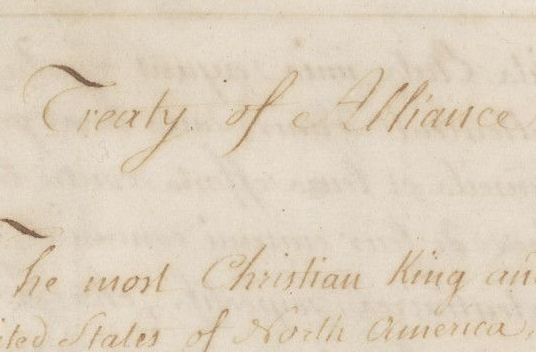 Treaty of Alliance
The most Christian King and
United States of North America,